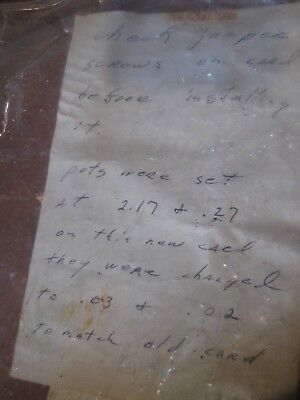 check jumper
screws on card
before installing
it.
pots were set
At 2.17 & .27
on this new card
they were changed
to .03 & .02
To match old card